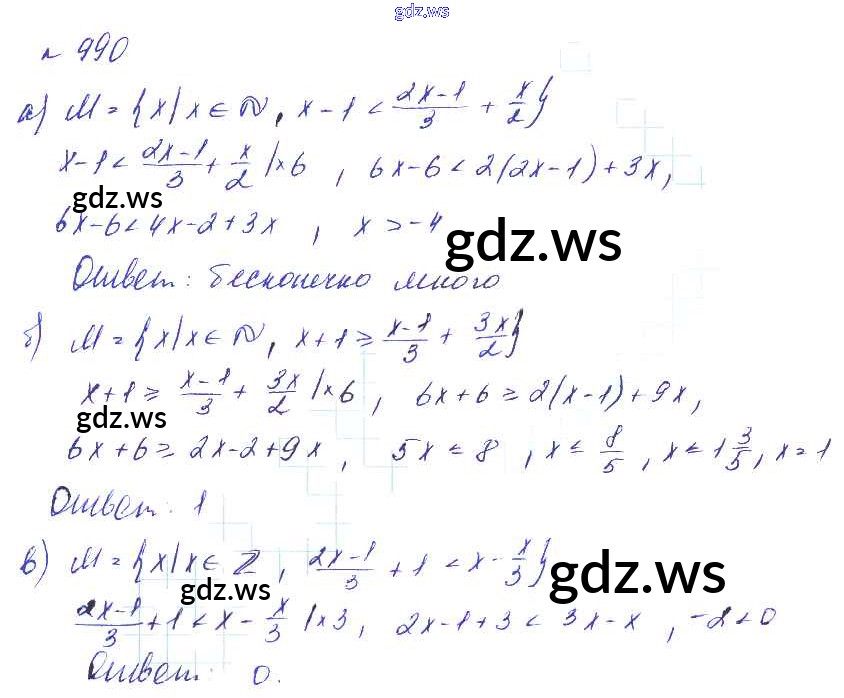 gdz.ws
№ 990
а) M = {x/x ∈ N, x-1 < (2x-1)/3 + x/2}
x-1 < (2x-1)/3 + x/2 /×6 , 6x-6 < 2(2x-1)+3x,
gdz.ws
6x-6 < 4x-2+3x , x > -4
gdz.ws
Ответ: бесконечно много
б) M = {x/x ∈ N, x+1 ≥ (x-1)/3 + 3x/2}
x+1 ≥ (x-1)/3 + 3x/2 /×6 , 6x+6 ≥ 2(x-1)+9x,
gdz.ws
6x+6 ≥ 2x-2+9x , 5x ≤ 8 , x ≤ 8/5 , x ≤ 1 3/5, x = 1
Ответ: 1
в) M = {x/x ∈ Z , (2x-1)/3 + 1 < x - x/3}
gdz.ws
gdz.ws
(2x-1)/3 + 1 < x - x/3 /×3 , 2x-1+3 < 3x-x , -2 < 0
Ответ: 0.